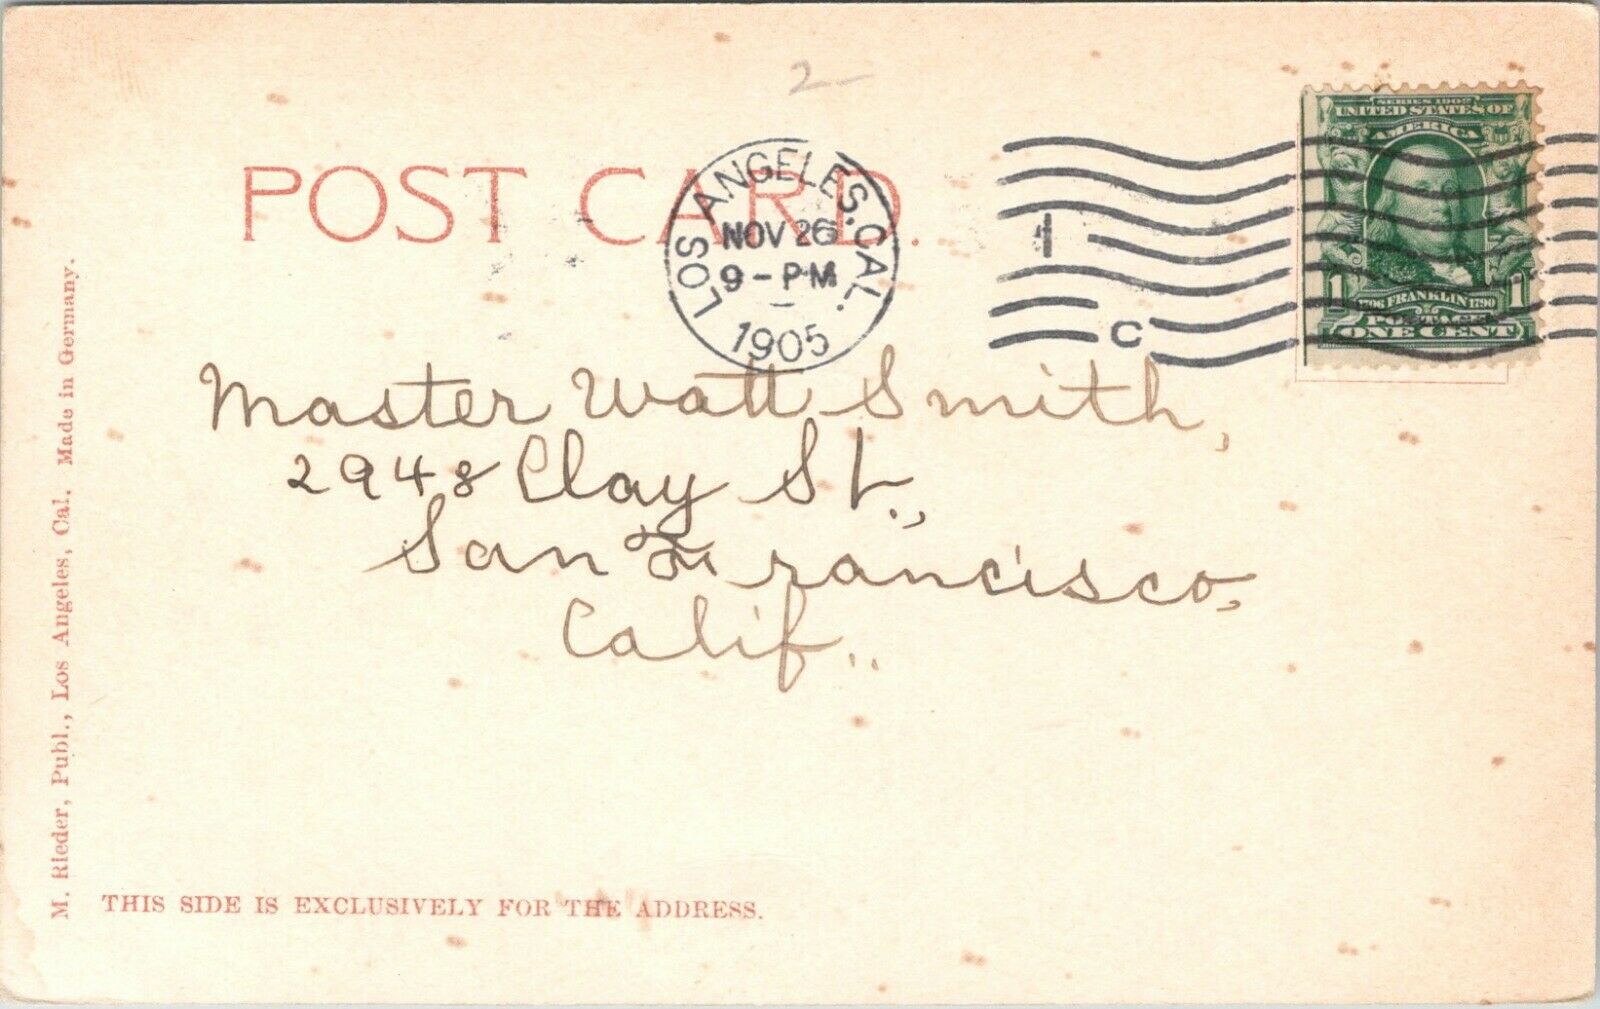 2-
POST CARD.
LOS ANGELES. CAL.
NOV 26
9-PM
1905
1
C
SERIES 1902
UNITED STATES OF
AMERICA
1 1706 FRANKLIN 1790 1
POSTAGE
ONE CENT
Master Watt Smith,
2948 Clay St.,
San Francisco,
Calif..
M. Rieder, Publ., Los Angeles, Cal. Made in Germany.
THIS SIDE IS EXCLUSIVELY FOR THE ADDRESS.